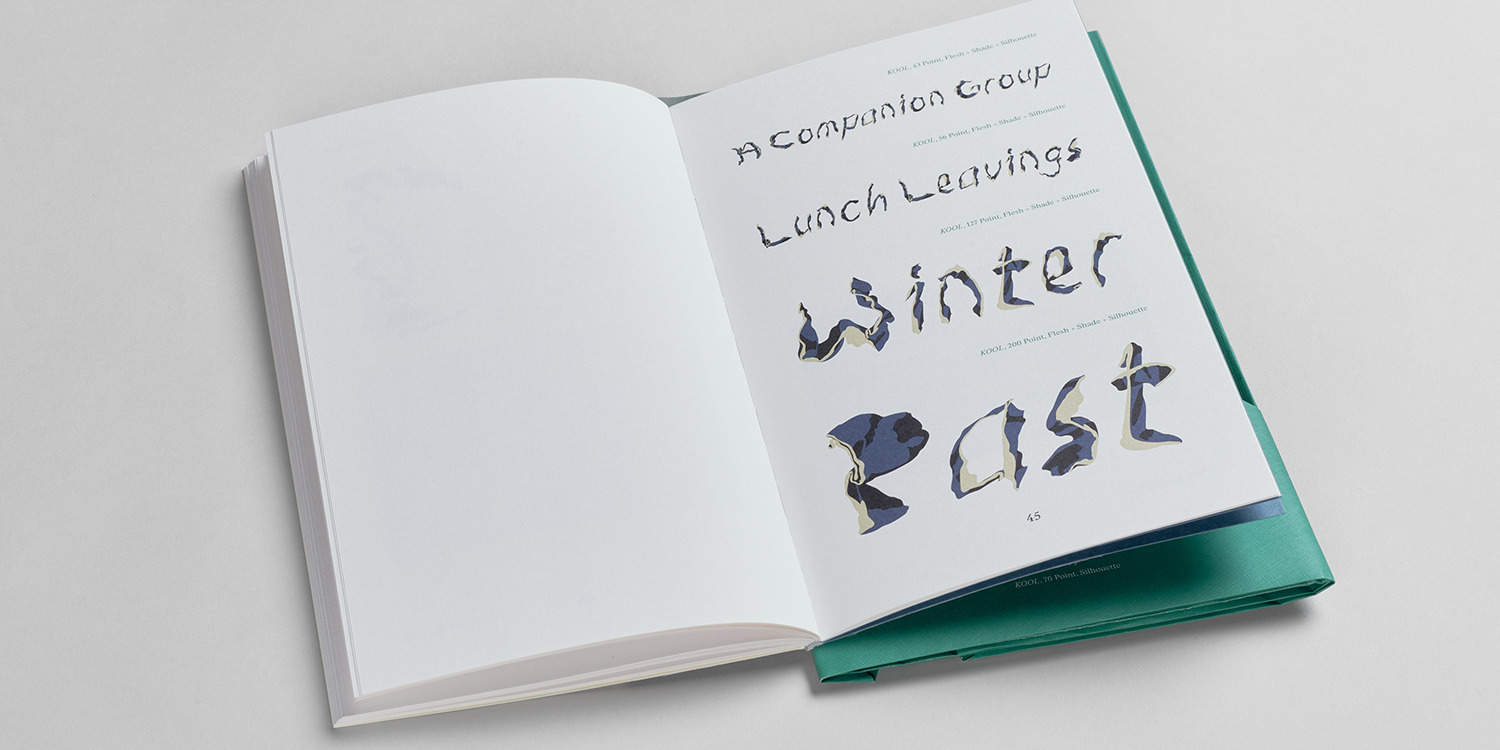 KOOL, 43 Point, Flesh + Shade + Silhouette
A Companion Group
KOOL, 56 Point, Flesh + Shade + Silhouette
Lunch Leavings
KOOL, 127 Point, Flesh + Shade + Silhouette
Winter
KOOL, 200 Point, Flesh + Shade + Silhouette
Past
45
KOOL, 70 Point, Silhouette